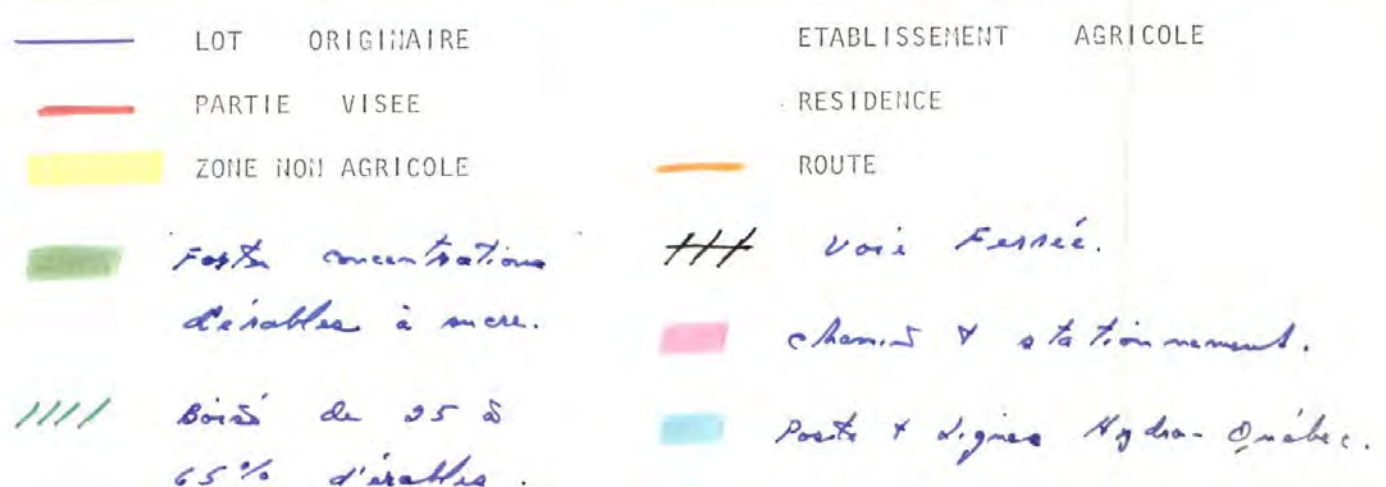 LOT ORIGINAIRE
PARTIE VISEE
ZONE NON AGRICOLE
Fortes concentrations
d'érables à sucre.
Boisés de 25 à
65% d'érables.
ETABLISSEMENT AGRICOLE
RESIDENCE
ROUTE
Voie Ferrée.
chemins & stationnement.
Poste & Lignes Hydro-Québec.